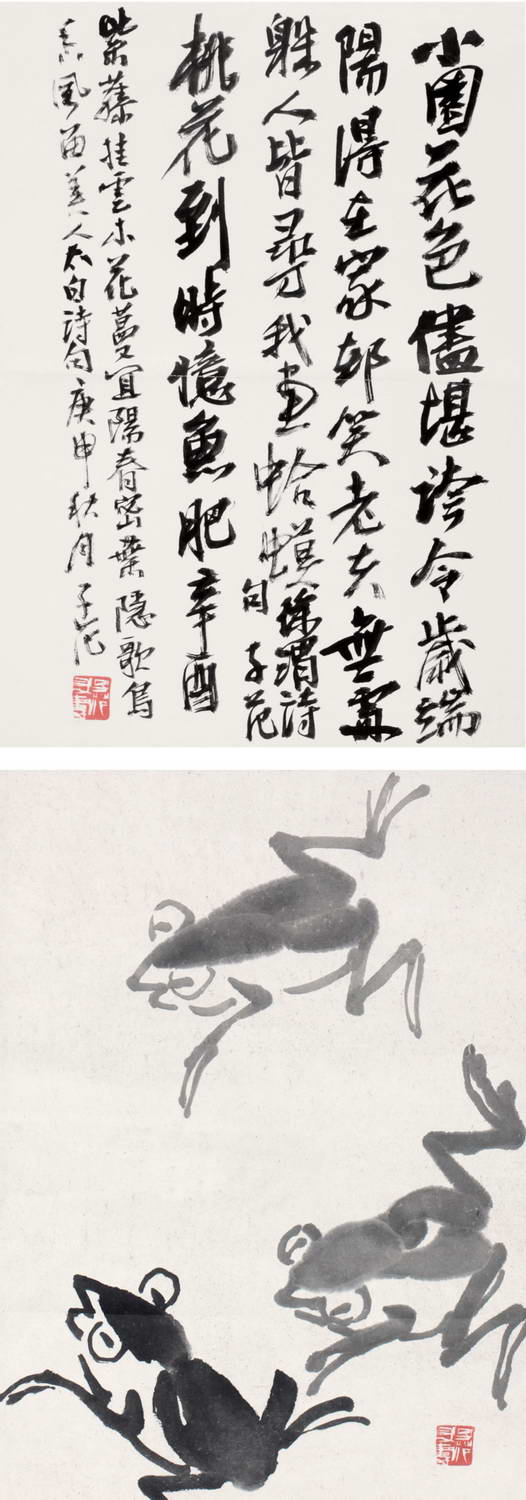 小園花色儘堪誇今歲端
陽得在家却笑老夫無處
躲人皆尋我画蛤蟆徐渭詩
句子范
桃花到時憶魚肥辛酉
紫藤挂雲木花蔓宜陽春密葉隱歌鳥
香風留美人太白詩句庚申秋月子范